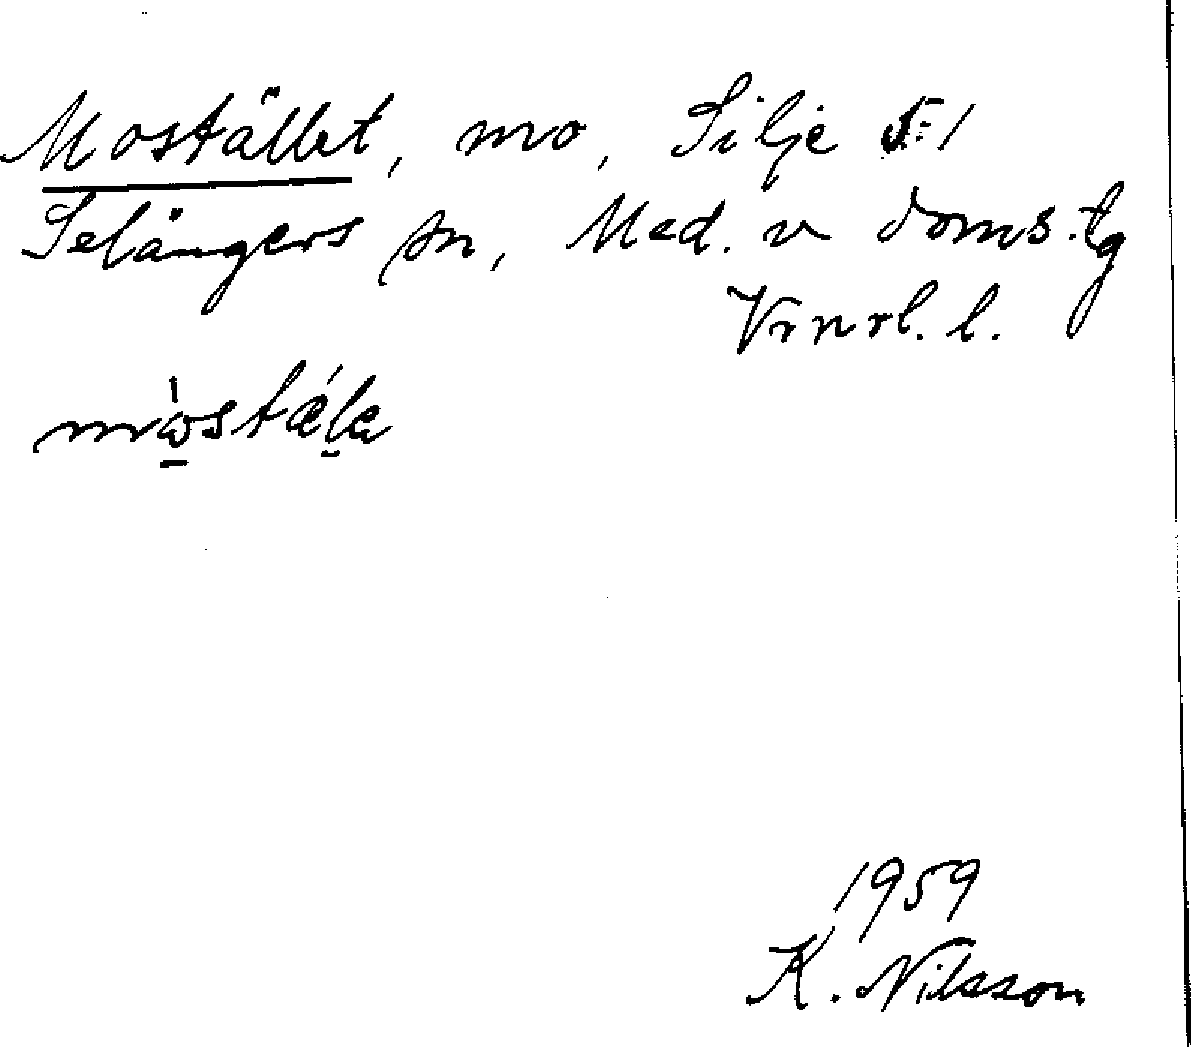 Mostället, mo, Silje 5:1
Selångers sn, Med. v doms.tg
Vrnrl. l.
mɷ̀stǽla
1959
K. Nilsson